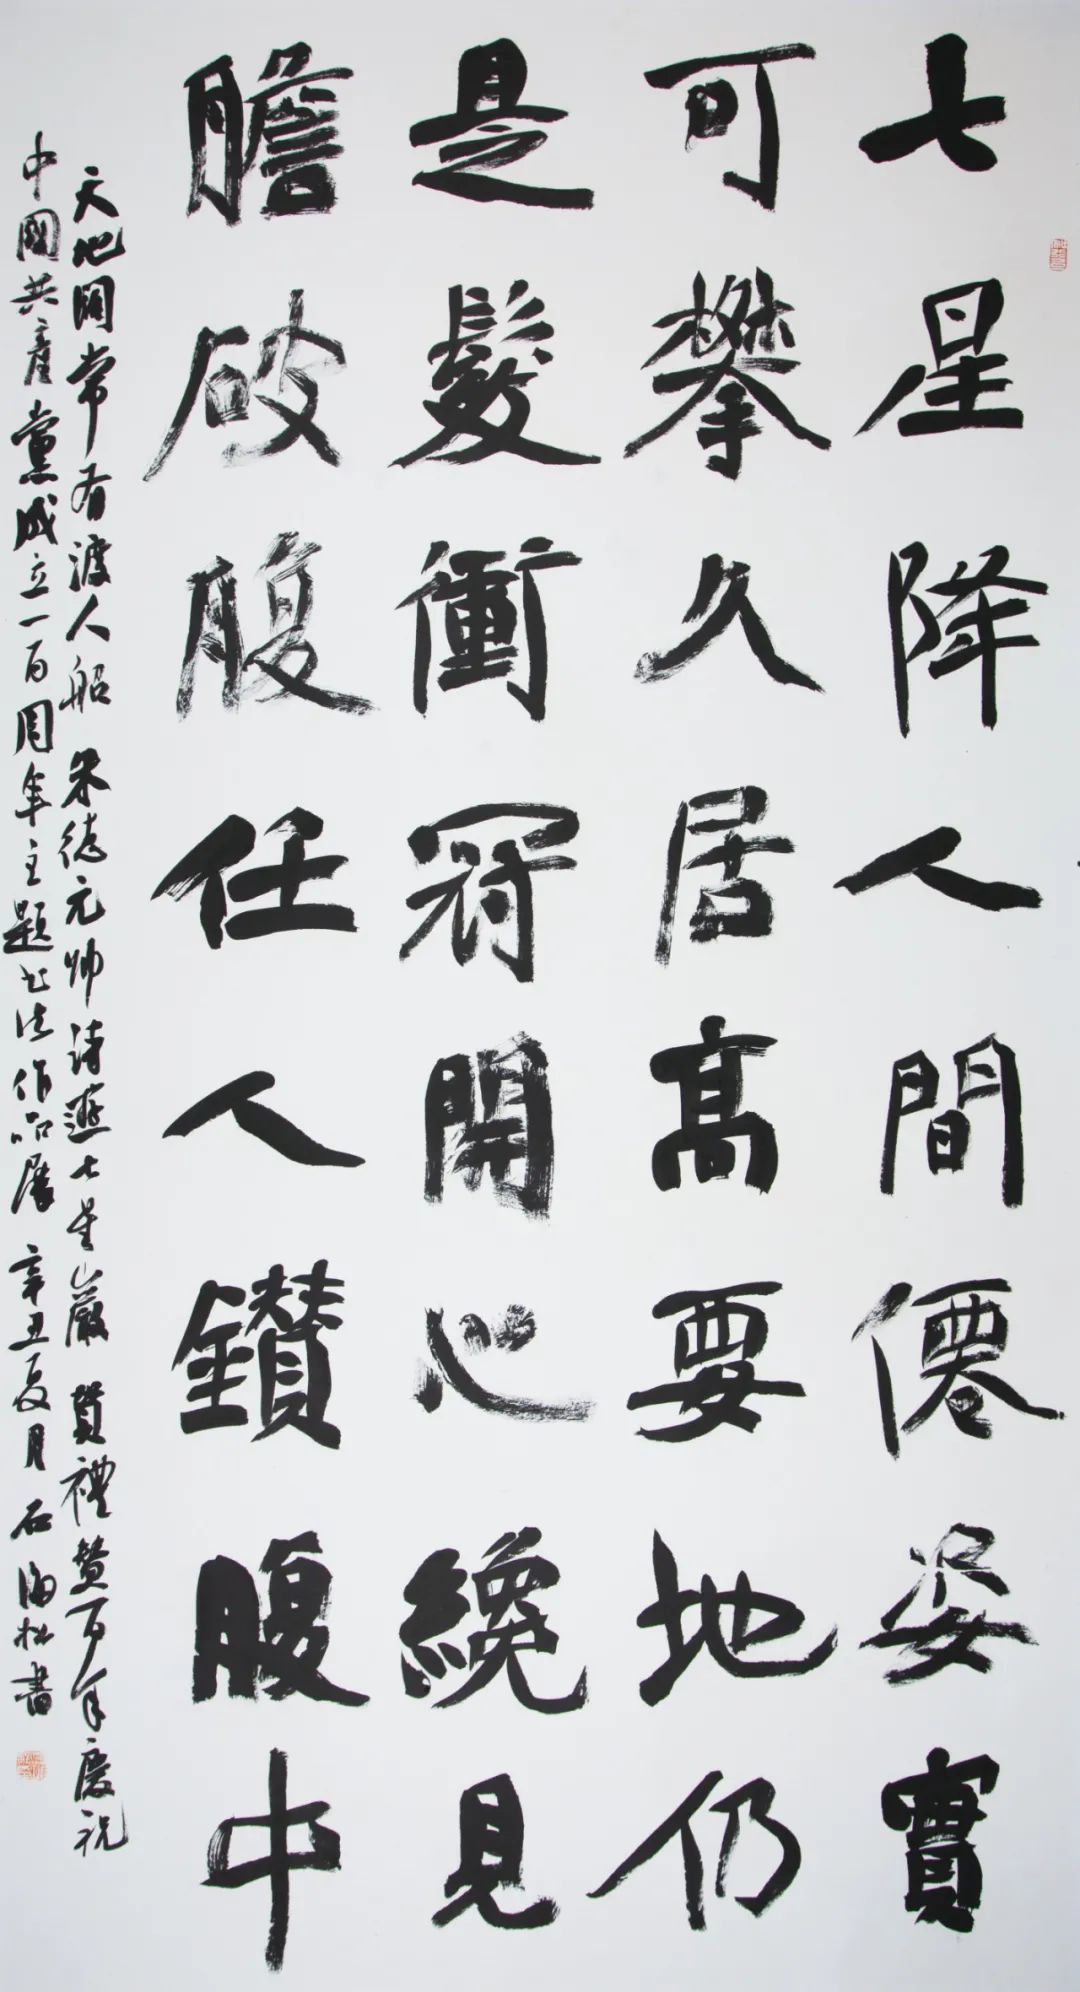 七星降人間僊姿實
可攀久居高要地仍
是髮衝冠開心纔見
膽破腹任人鑽腹中
天地闊常有渡人船 朱德元帅诗遊七星巖 賀禮赞百年慶祝
中國共產黨成立一百周年主题书法作品展 辛丑夏月 石海松書